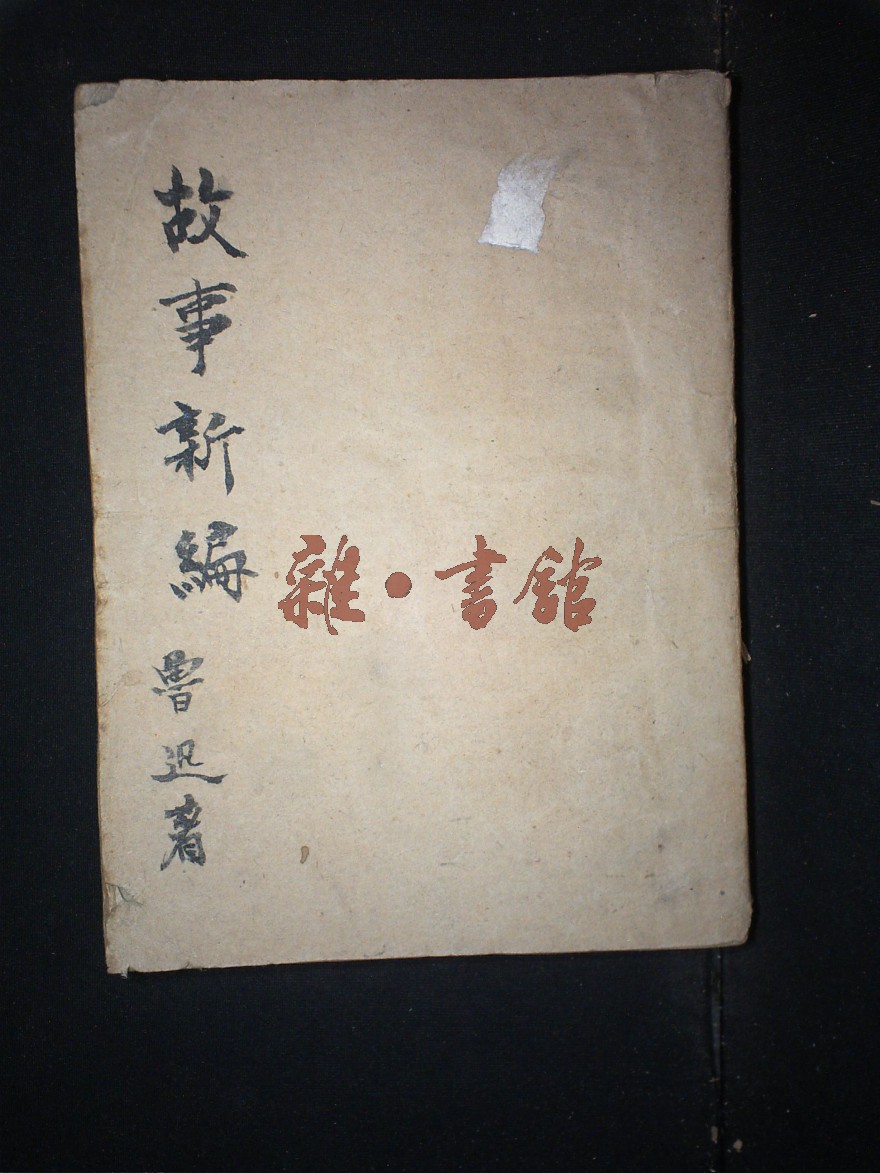 故事新編 魯迅著
雜·書館